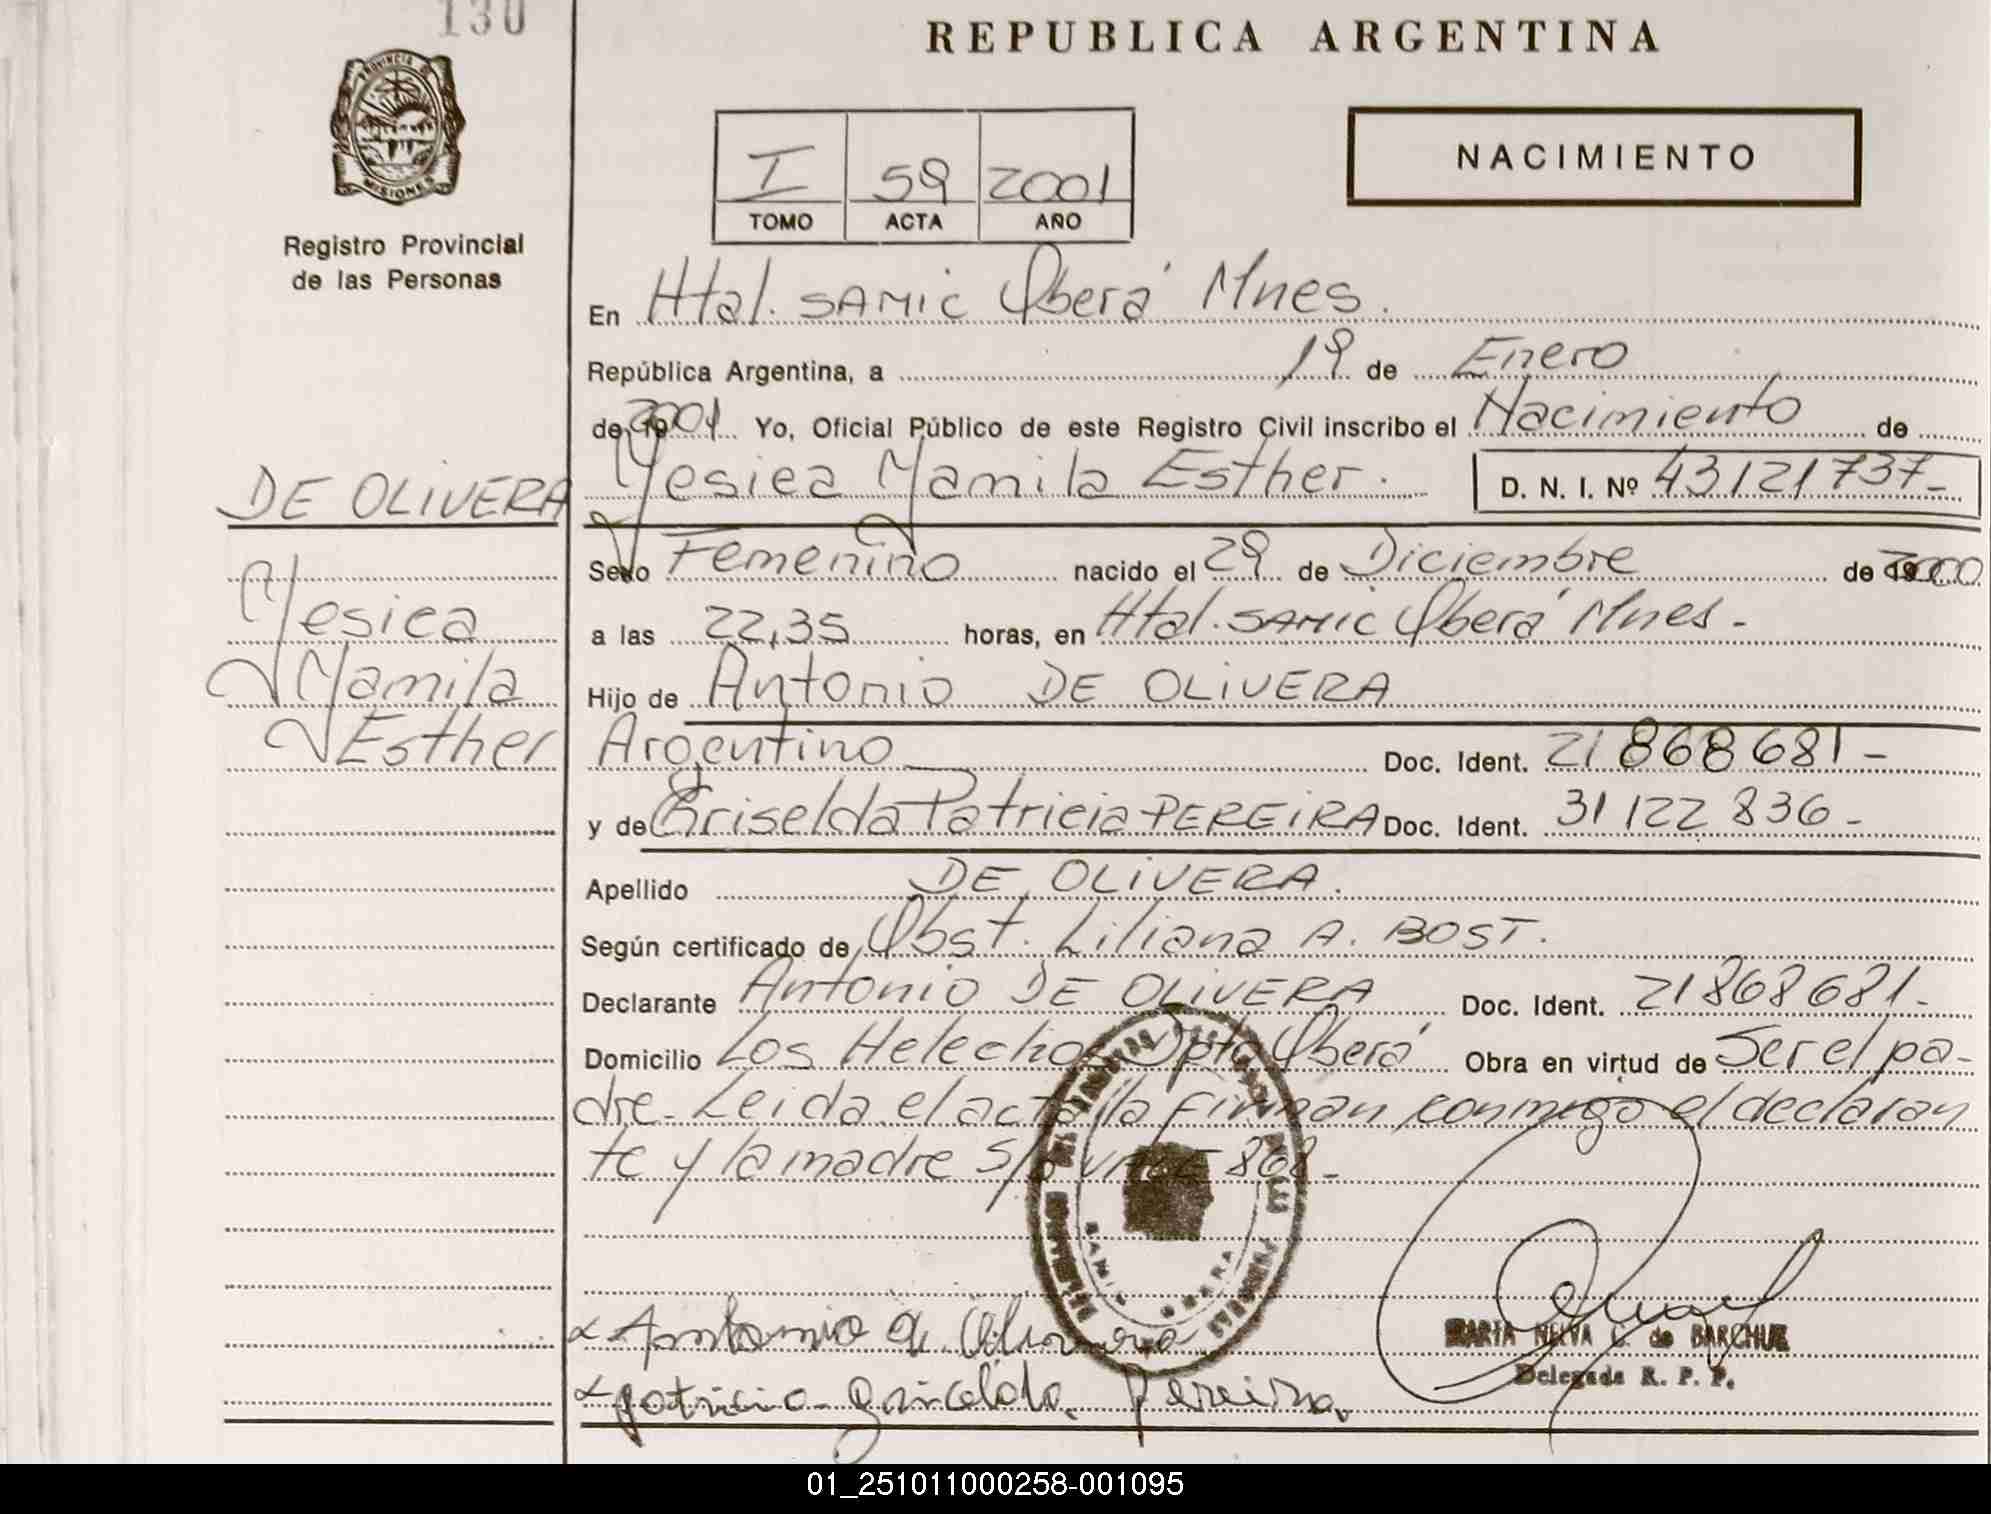 130
REPUBLICA ARGENTINA
PROVINCIA DE
MISIONES
Registro Provincial
de las Personas
I 59 2001
TOMO ACTA AÑO
NACIMIENTO
En Htal. SAMIC Oberá Mnes.
República Argentina, a 19 de Enero
de 2001 Yo, Oficial Público de este Registro Civil inscribo el Nacimiento de
Yesica Yamila Esther. D. N. I. Nº 43121737-
DE OLIVERA
Yesica
Yamila
Esther
Sexo Femenino nacido el 29 de Diciembre de 2000
a las 22,35 horas, en Htal. SAMIC Oberá Mnes.-
Hijo de Antonio DE OLIVERA
Argentino Doc. Ident. 21 868 681-
y de Griselda Patricia PEREIRA Doc. Ident. 31 122 836-
Apellido DE OLIVERA.
Según certificado de Obst. Liliana A. BOST.
Declarante Antonio DE OLIVERA Doc. Ident. 21868681-
Domicilio Los Helechos Dpto Oberá Obra en virtud de Ser el pa-
dre- Leida el acta la firman conmigo el declaran
te y la madre s/r VALE 868-
OBERA
Antonio d. Olivera
patricia griselda. Pereira.
MARTA NELVA C. de BARCHUK
Delegada R. P. P.
01_251011000258-001095